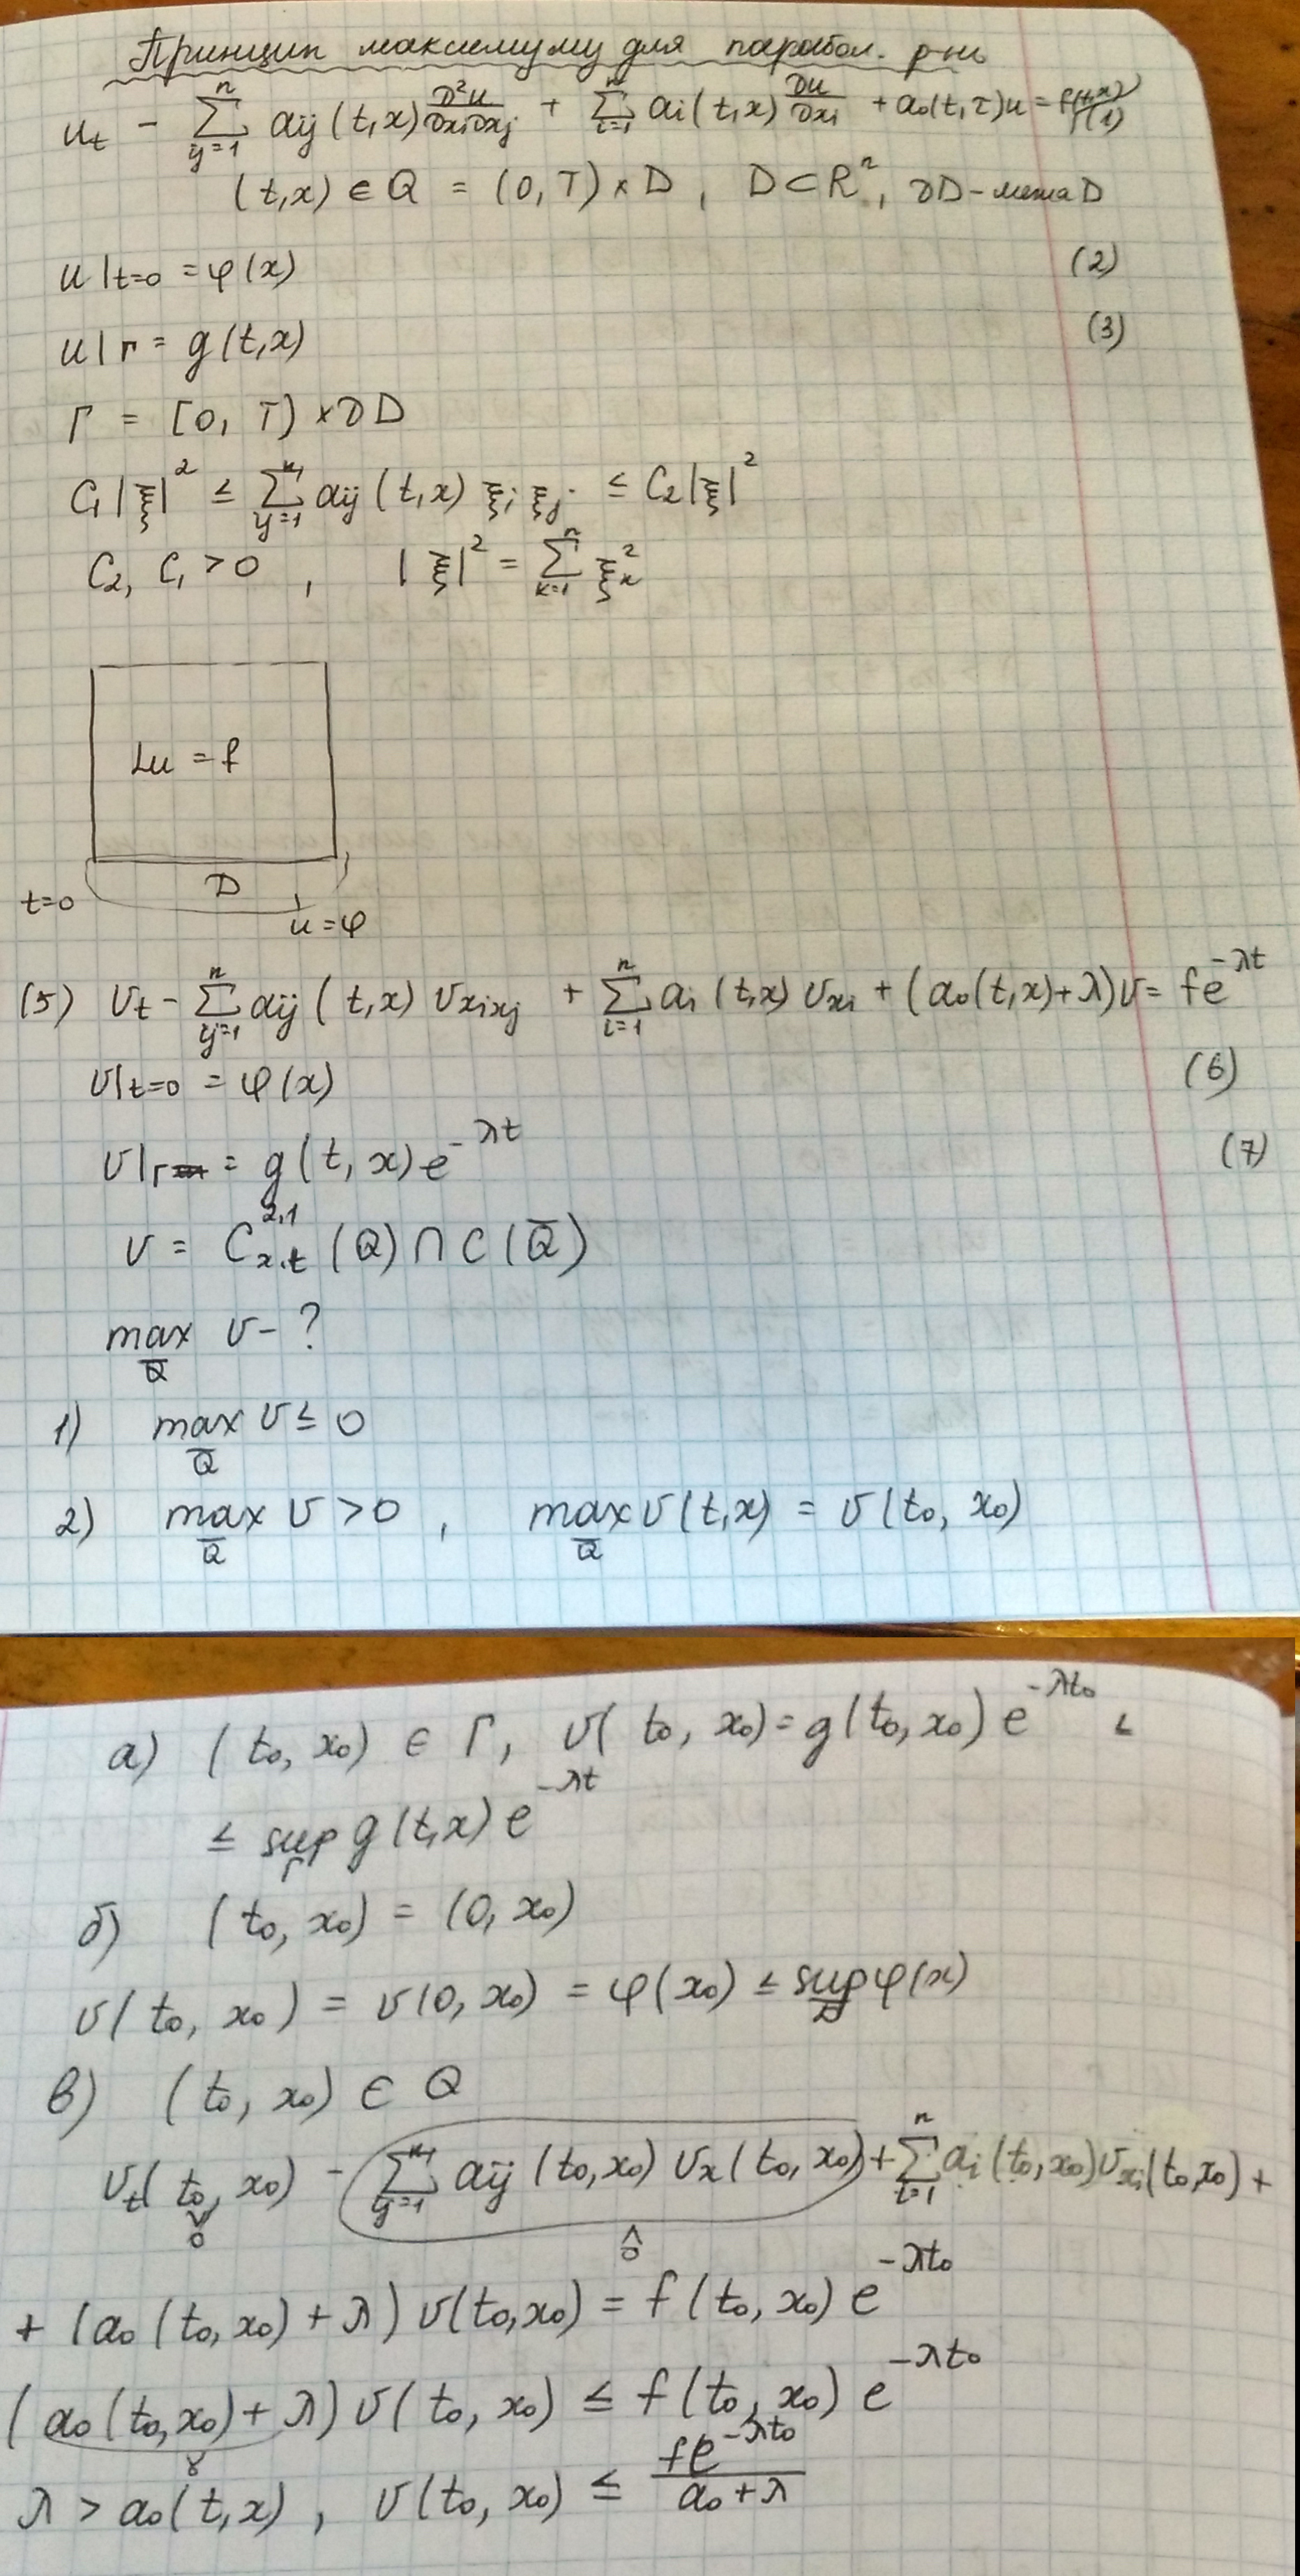 Принцип максимуму для парабол. р-нь
u_t - ∑_{ij=1}^{n} a_{ij}(t,x) ∂²u/∂x_i∂x_j + ∑_{i=1}^{n} a_i(t,x) ∂u/∂x_i + a_0(t,τ)u = f(t,x) (1)
(t,x) ∈ Q = (0,T) × D, D ⊂ R^n, ∂D - межа D
u|_{t=0} = φ(x) (2)
u|_Γ = g(t,x) (3)
Γ = [0, T) × ∂D
C_1|ξ|² ≤ ∑_{ij=1}^{n} a_{ij}(t,x) ξ_i ξ_j ≤ C_2|ξ|²
C_2, C_1 > 0, |ξ|² = ∑_{k=1}^{n} ξ_k²
Lu = f
D
t=0
u = φ
(5) v_t - ∑_{ij=1}^{n} a_{ij}(t,x) v_{x_i x_j} + ∑_{i=1}^{n} a_i(t,x) v_{x_i} + (a_0(t,x)+λ)v = fe^{-λt}
v|_{t=0} = φ(x) (6)
v|_Γ = g(t,x)e^{-λt} (7)
v = C_{x,t}^{2,1}(Q) ∩ C(Q̅)
max_{Q̅} v - ?
1) max_{Q̅} v ≤ 0
2) max_{Q̅} v > 0, max_{Q̅} v(t,x) = v(t_0, x_0)
а) (t_0, x_0) ∈ Γ, v(t_0, x_0) = g(t_0, x_0) e^{-λt_0} ≤
≤ sup_Γ g(t,x) e^{-λt}
б) (t_0, x_0) = (0, x_0)
v(t_0, x_0) = v(0, x_0) = φ(x_0) ≤ sup_D φ(x)
в) (t_0, x_0) ∈ Q
v_t(t_0, x_0) - ∑_{ij=1}^{n} a_{ij}(t_0,x_0) v_x(t_0, x_0) + ∑_{i=1}^{n} a_i(t_0,x_0) v_{x_i}(t_0,x_0) +
+ (a_0(t_0,x_0)+λ) v(t_0,x_0) = f(t_0, x_0) e^{-λt_0}
(a_0(t_0,x_0)+λ) v(t_0, x_0) ≤ f(t_0, x_0) e^{-λt_0}
λ > a_0(t,x), v(t_0, x_0) ≤ fe^{-λt_0}/(a_0+λ)